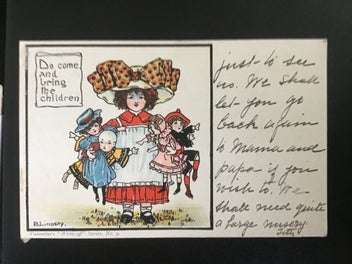 Do come,
and
bring
the
children
B. Lindsay.
Valentine's "Write off" Series, No. 3.
just to see
us. We shall
let you go
back again
to Mama and
papa if you
wish to. We
shall need quite
a large nursery